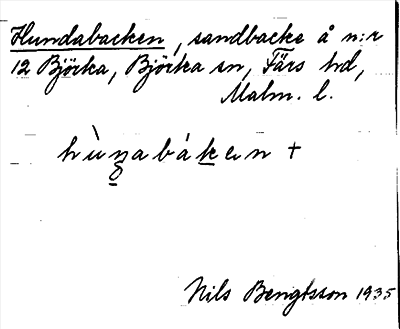 Hundabacken, sandbacke å n:r
12 Björka, Björka sn, Färs hd,
Malm. l.
hùn̲abák̲en +
Nils Bengtsson 1935